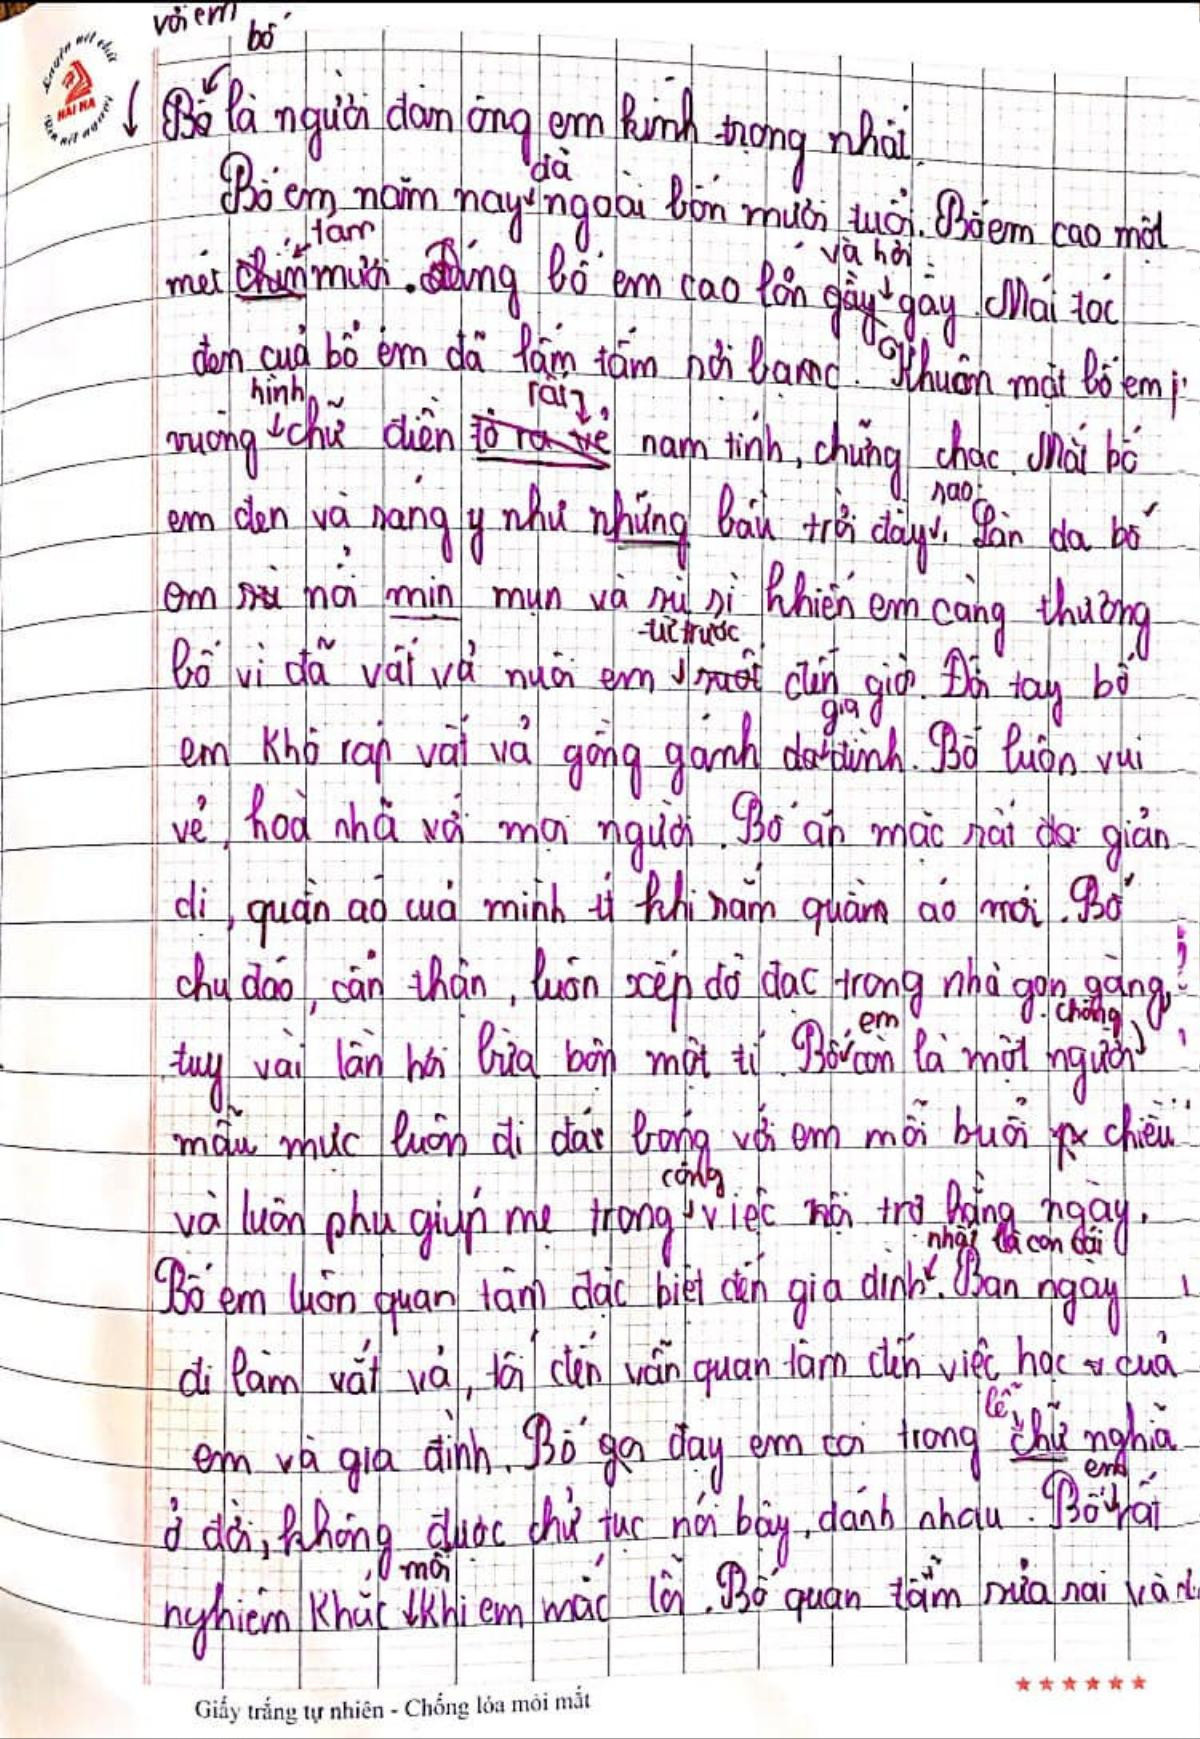 với em bố
Luyện nét chữ
HẢI HÀ
Rèn nết người
Bố là người đàn ông em kính trọng nhất.
đã
Bố em năm nay ngoài bốn mươi tuổi. Bố em cao một
tám và hơi
mét chín mươi. Dáng bố em cao lớn gầy gầy. Mái tóc
đen của bố em đã lấm tấm sợi bạc. Khuôn mặt bố em
hình rất
vuông chữ điền tỏ ra vẻ nam tính, chững chạc. Mắt bố
sao
em đen và sáng y như những bầu trời đầy. Làn da bố
em nổi mịn mụn và sù sì khiến em càng thương
từ trước
bố vì đã vất vả nuôi em suốt đến giờ. Đôi tay bố
gia
em khô ráp vất vả gồng gánh đình. Bố luôn vui
vẻ, hoà nhã với mọi người. Bố ăn mặc rất giản
dị, quần áo của mình ít khi sắm quần áo mới. Bố
chu đáo, cẩn thận, luôn xếp đồ đạc trong nhà gọn gàng,
em chồng
tuy vài lần hơi bừa bộn một tí. Bố còn là một người
mẫu mực luôn đi đá bóng với em mỗi buổi chiều
công
và luôn phụ giúp mẹ trong việc nội trợ hằng ngày.
nhất là con cái
Bố em luôn quan tâm đặc biệt đến gia đình. Ban ngày
đi làm vất vả, tối đến vẫn quan tâm đến việc học của
lễ
em và gia đình. Bố dạy em coi trọng chữ nghĩa
em
ở đời, không được chử tục nói bậy, đánh nhau. Bố rất
mỗi
nghiêm khắc khi em mắc lỗi. Bố quan tâm sửa sai và
Giấy trắng tự nhiên - Chống lóa mỏi mắt